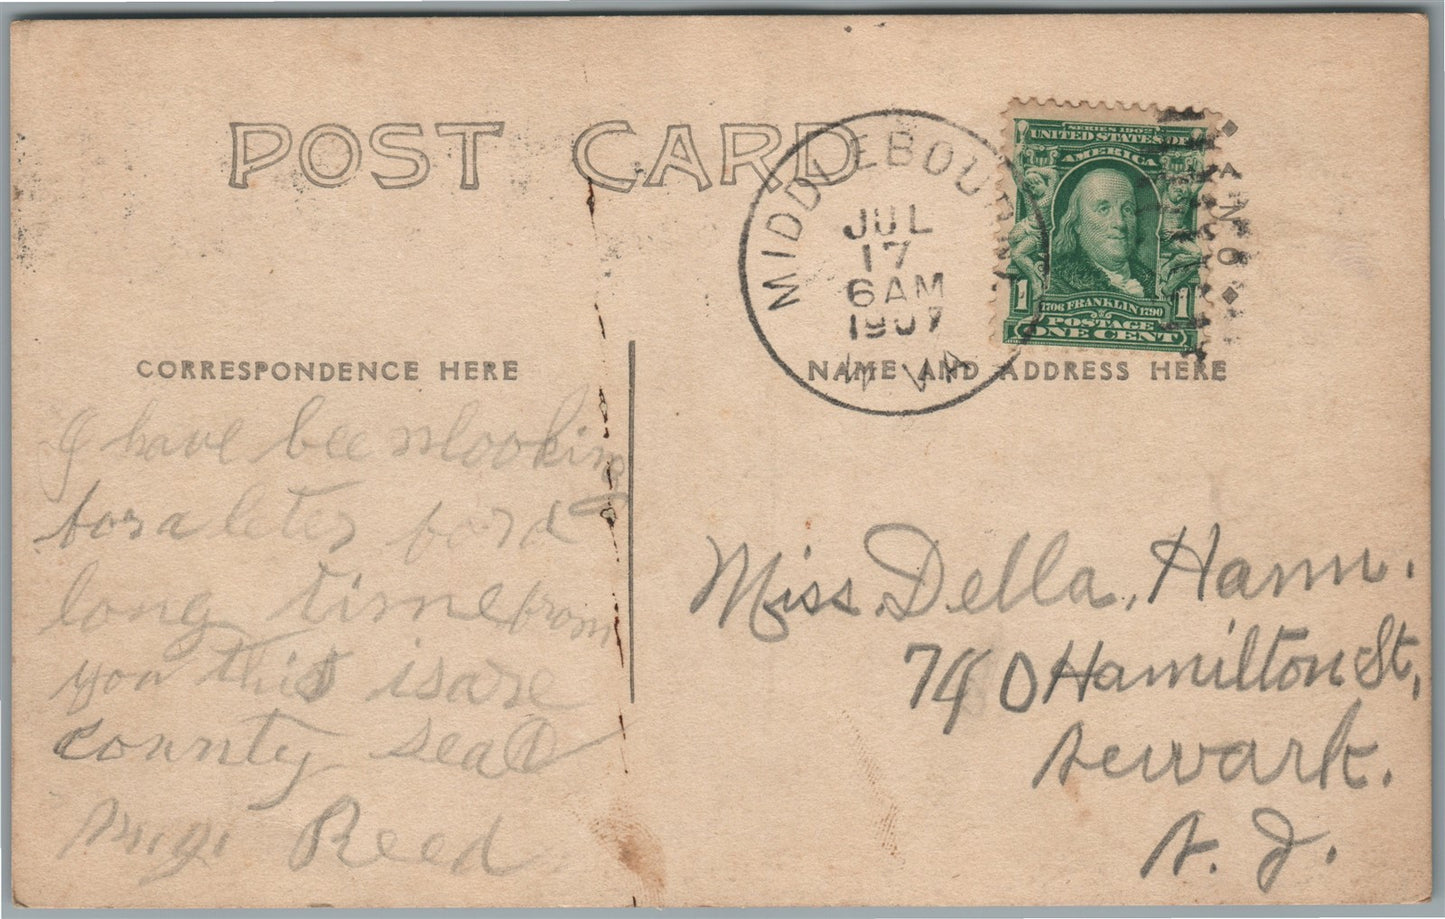 POST CARD
MIDDLEBOURNE
JUL
17
6 AM
1907
W. VA
SERIES 1902
UNITED STATES OF
AMERICA
1706 FRANKLIN 1790
1 1
POSTAGE
ONE CENT
CORRESPONDENCE HERE
NAME AND ADDRESS HERE
I have been looking
for a leter for a
long time from
you this is are
county seat
Reed
Miss. Della, Hann.
740 Hamilton St,
Newark.
N. J.